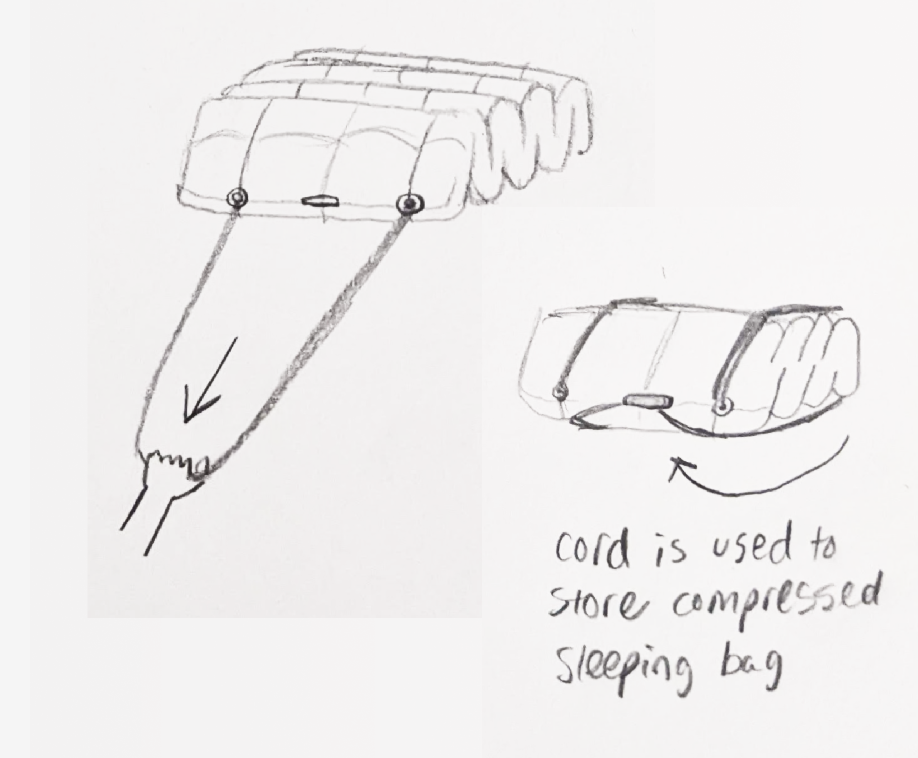 cord is used to
store compressed
sleeping bag